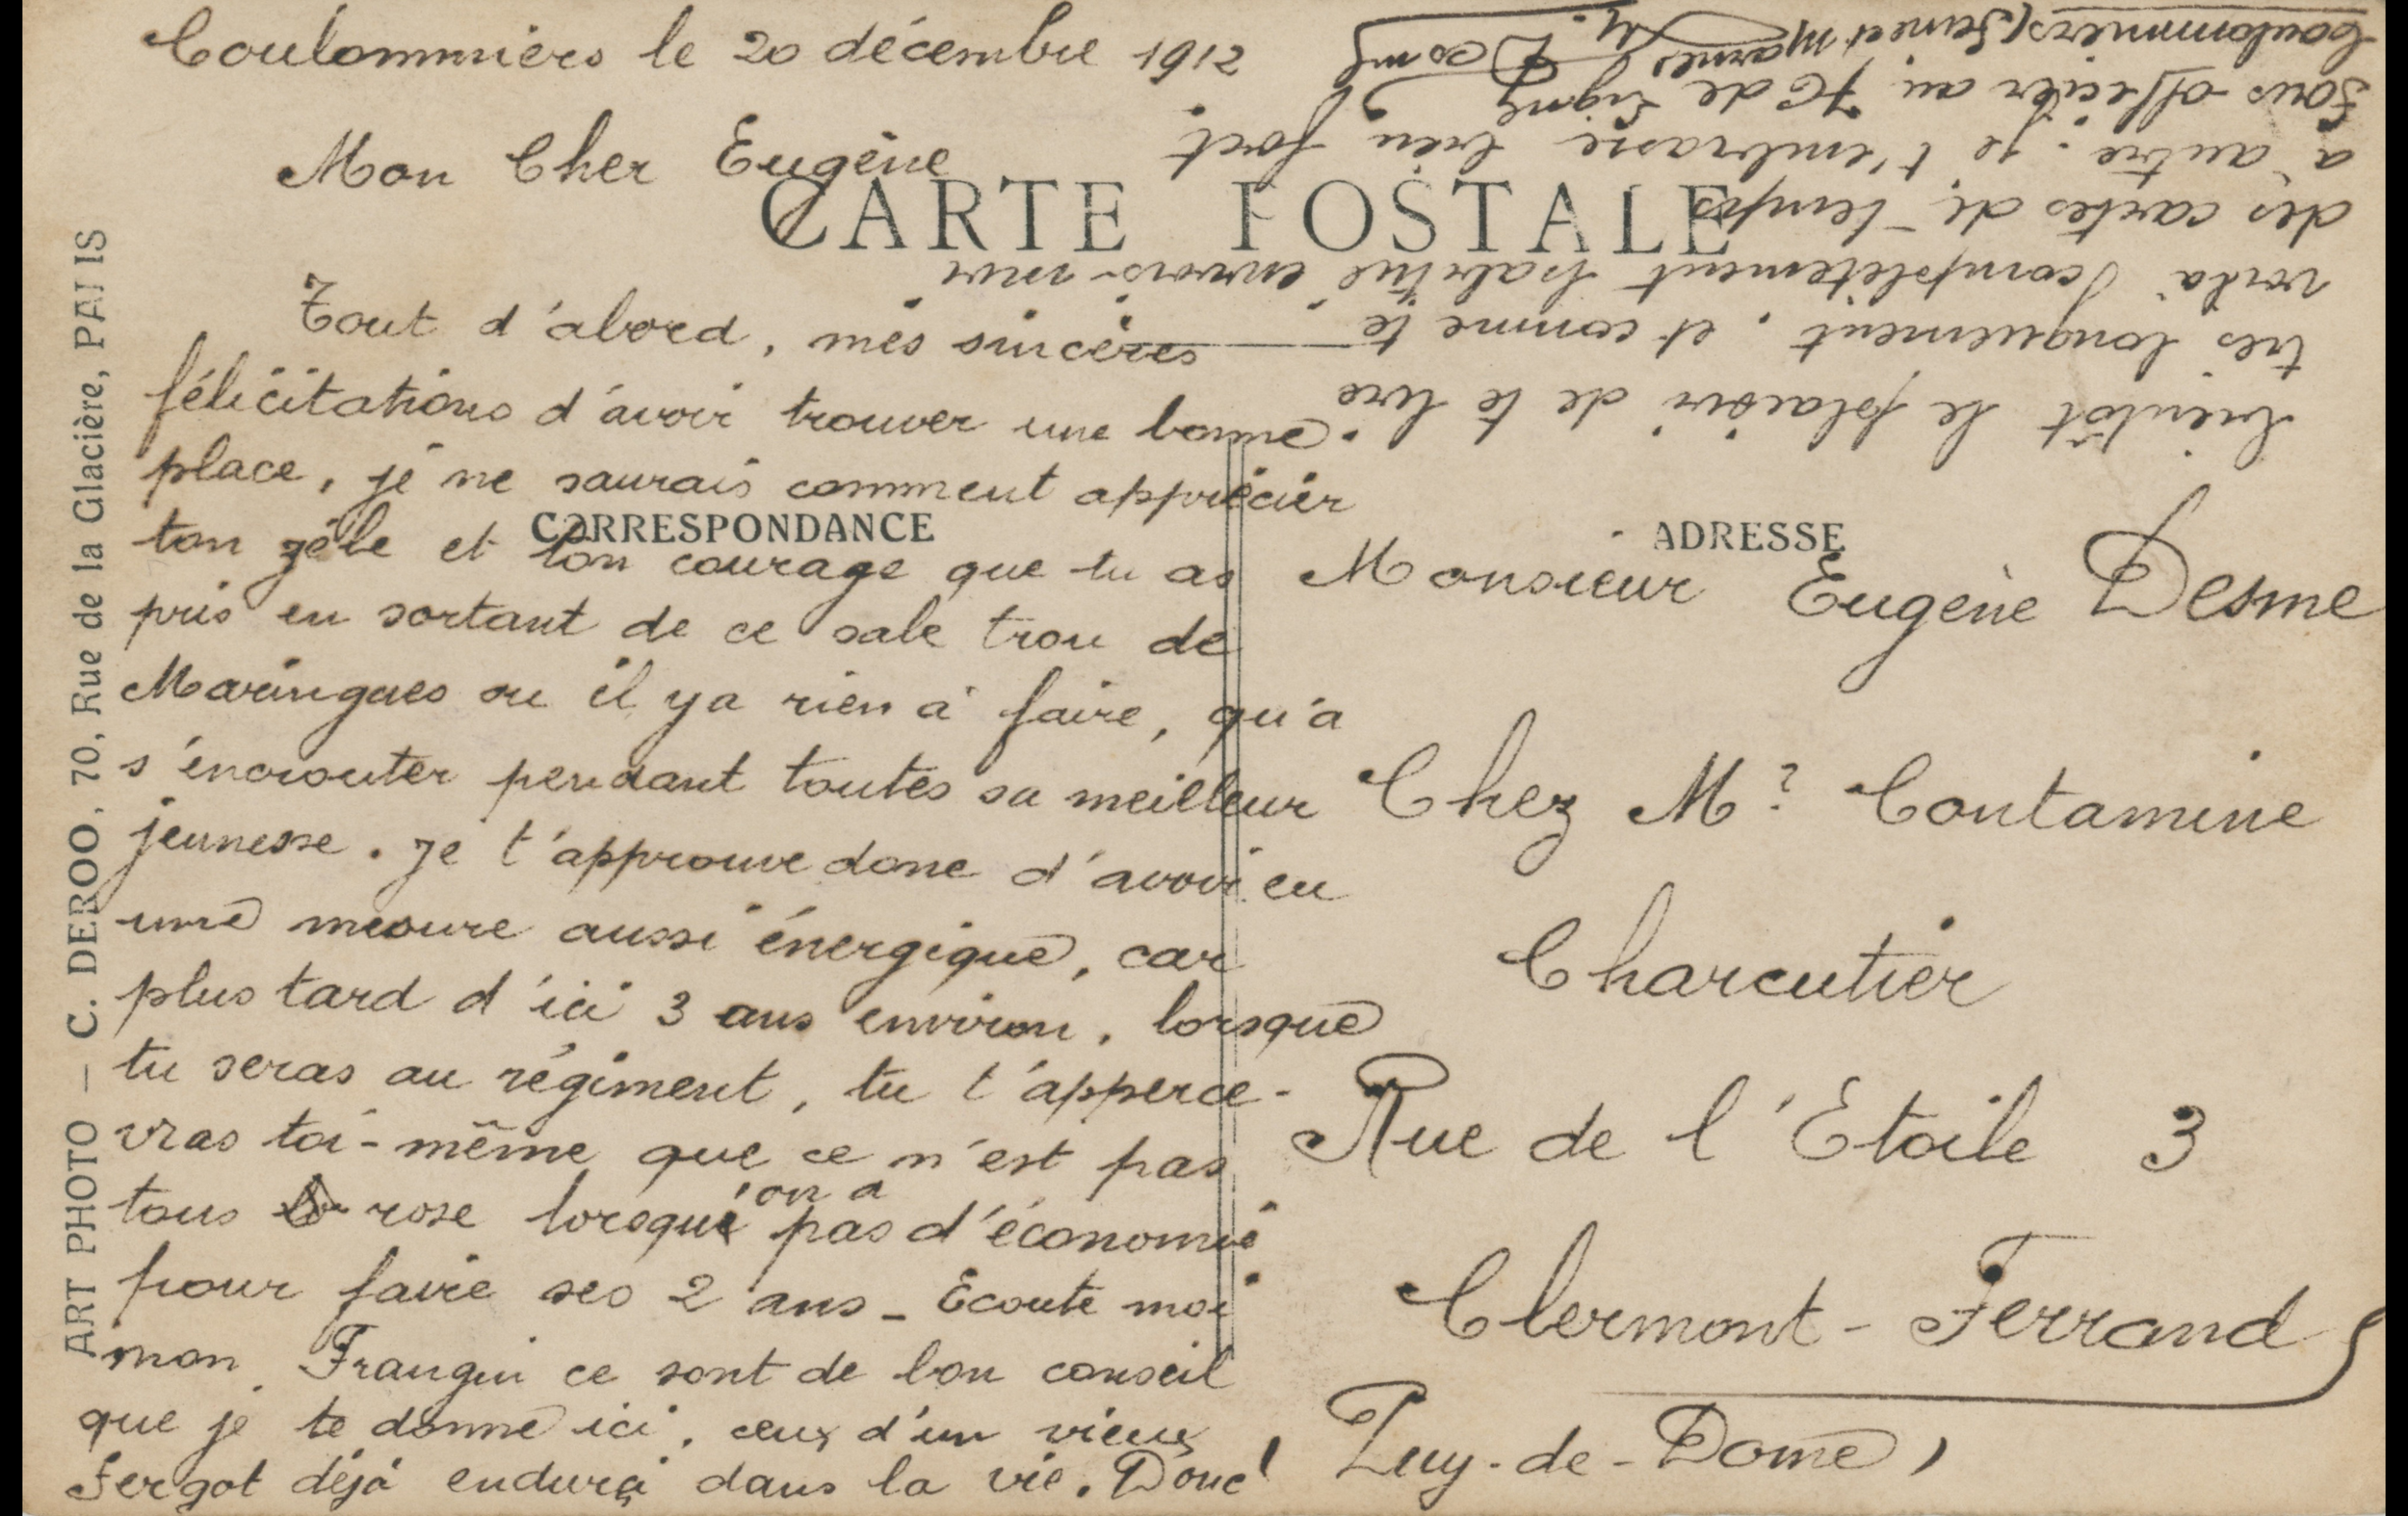 Coulommiers le 20 décembre 1912
Mon Cher Eugène
CARTE POSTALE
Tout d'abord, mes sincères
félicitations d'avoir trouver une bonne
place, je ne saurais comment apprécier
ton zèle et ton courage que tu as
pris en sortant de ce sale trou de
Maringues ou il y a rien à faire, qu'a
s'encrouter pendant toutes sa meilleur
jeunesse. Je t'approuve donc d'avoir eu
une mesure aussi énergique, car
plus tard d'ici 3 ans environ, lorsque
tu seras au régiment, tu t'apperce-
vras toi-même que ce n'est pas
tous rose lorsqu'on a pas d'économie
pour faire ses 2 ans - Ecoute moi
mon Frangin ce sont de bon conseil
que je te donne ici, ceux d'un vieux
Fergot déjà endurci dans la vie. Donc!
bientôt le plaisir de te lire
très longuement, et comme te
voilà complètement habitué envois-moi
des cartes de temps
à autre. je t'embrasse bien fort
Sous-officier au 76 de Ligne
Coulommiers (Seine et Marne)
CORRESPONDANCE
ADRESSE
Monsieur Eugène Desme
Chez Mr Contamine
Charcutier
Rue de l'Etoile 3
Clermont-Ferrand
Puy-de-Dome
ART PHOTO — C. DEROO, 70, Rue de la Glacière, PARIS